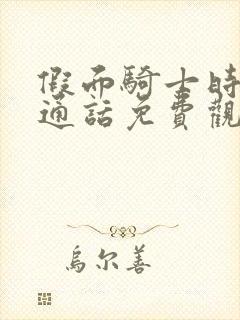 假而騎士時
通話免費觀
烏尔善